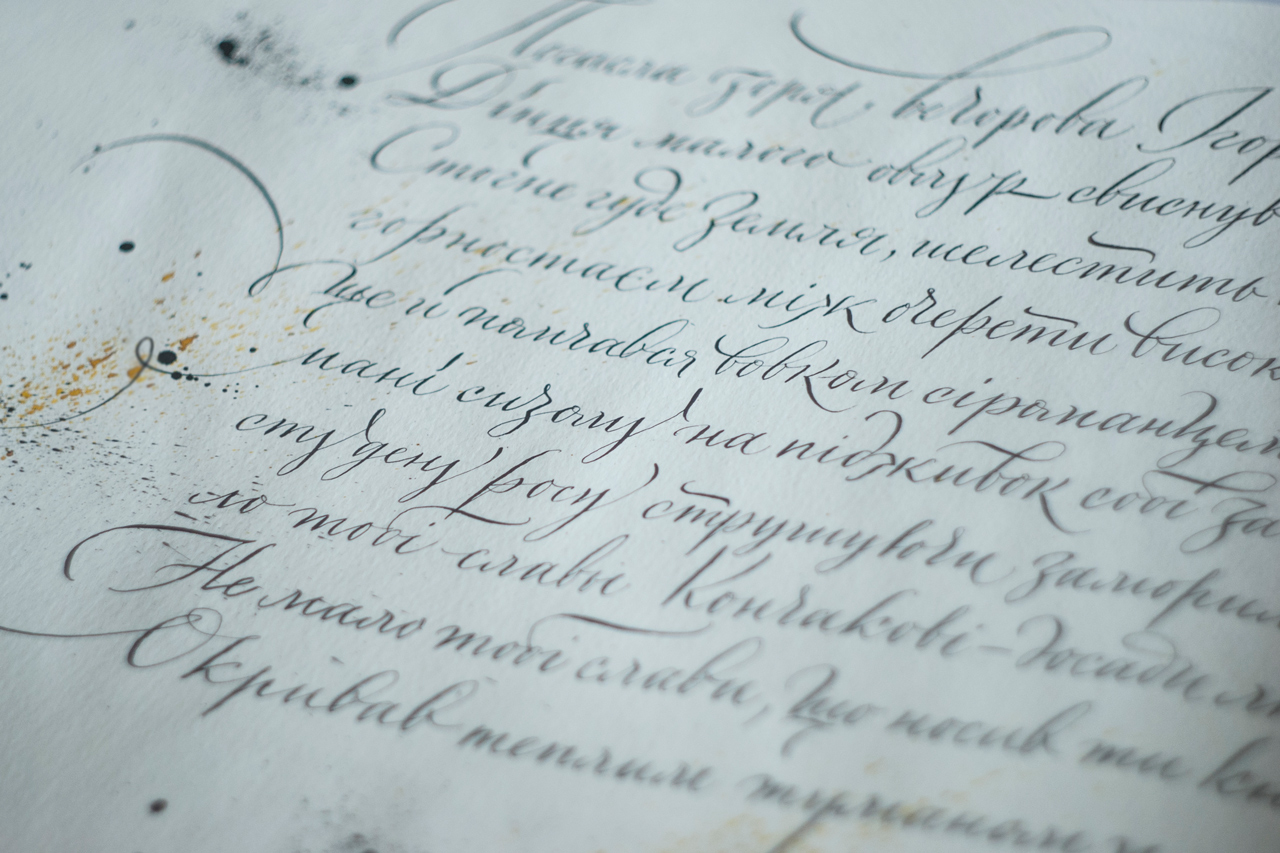 Погасла зоря вечорова Ігор
Дінця малого овлур свиснув
Стогне гуде земля, шелестить
горностаєм між очерети висок
ще й помчався вовком сіроманцем
мані сизому на підживок собі за
студену росу струшуючи заморил
ло тобі слави Кончакові-досади
Не мало тобі слави, що носив ти
Окривав теплим туманом